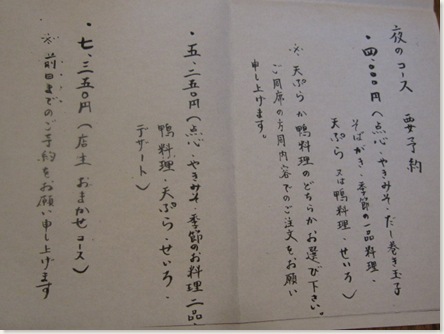 夜のコース　要予約
・四、〇〇〇円（点心・やきみそ・だし巻き玉子
そばがき・季節の一品料理・
天ぷら又は鴨料理・せいろ）
※天ぷらか鴨料理のどちらかお選び下さい。
ご同席の方同内容でのご注文をお願い
申し上げます。
・五、二五〇円（点心・やきみそ・季節のお料理二品・
鴨料理・天ぷら・せいろ・
デザート）
・七、三五〇円（店主おまかせコース）
※前日までのご予約をお願い申し上げます